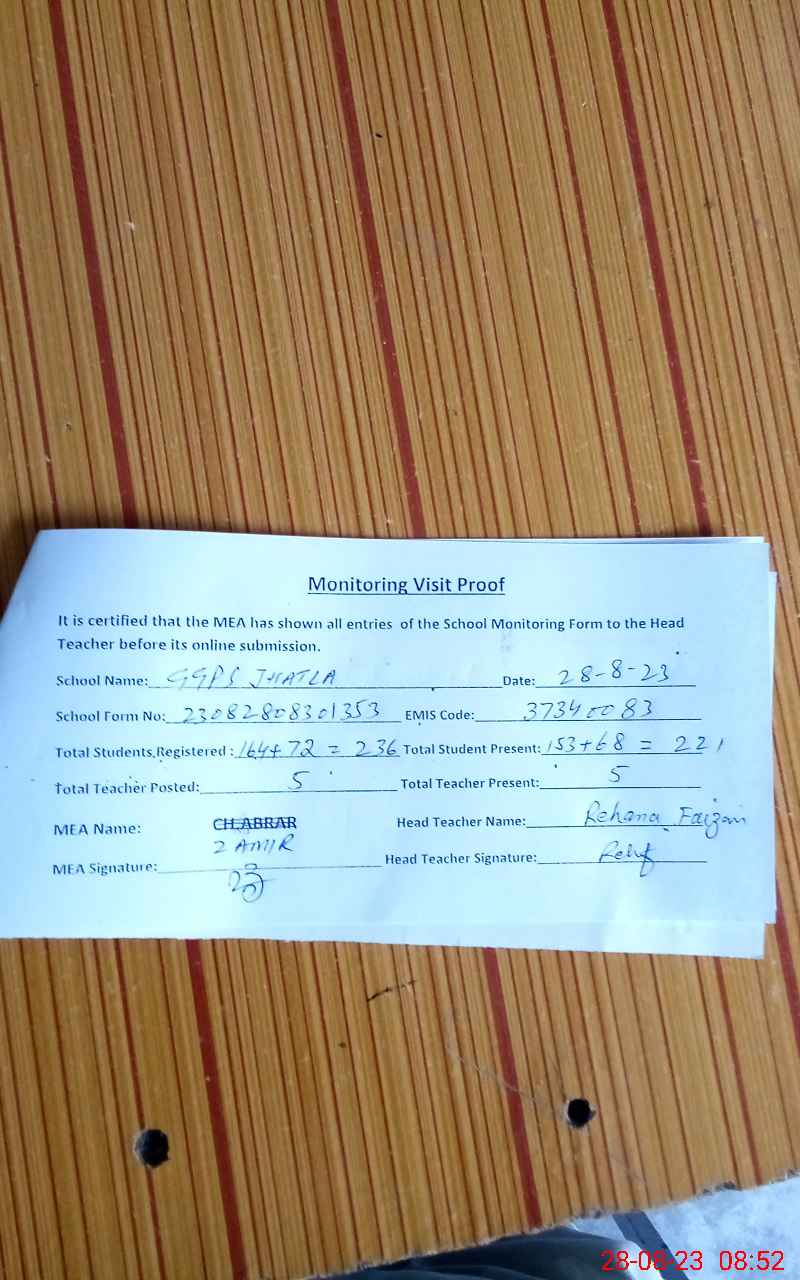 Monitoring Visit Proof
It is certified that the MEA has shown all entries of the School Monitoring Form to the Head
Teacher before its online submission.
School Name: GGPS JHATLA Date: 28-8-23
School Form No: 23082808301353 EMIS Code: 37340083
Total Students Registered : 164+72 = 236 Total Student Present: 153+68 = 221
Total Teacher Posted: 5 Total Teacher Present: 5
MEA Name: CH.ABRAR Head Teacher Name: Rehana Faizan
AMIR
MEA Signature: Head Teacher Signature:
28-08-23 08:52